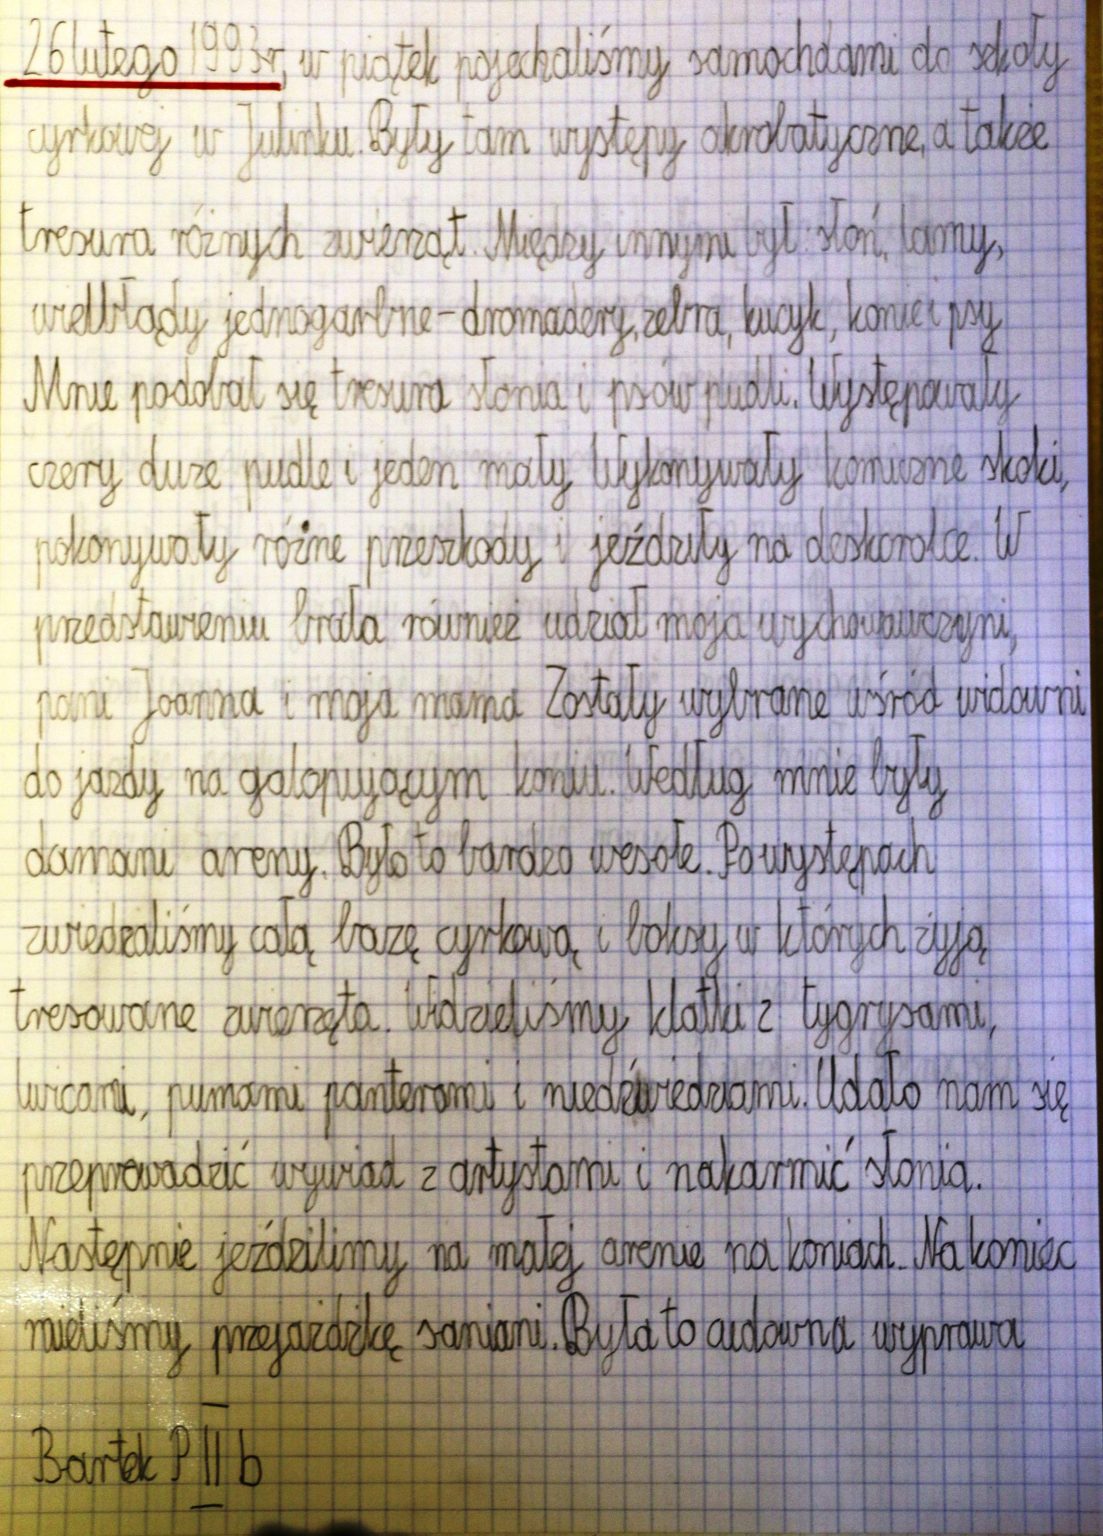 26 lutego 1993r, w piątek pojechaliśmy samochdami do szkoły
cyrkowej w Julinku. Były tam występy akrobatyczne, a także
tresura różnych zwierząt. Między innymi był słoń, lamy,
wielbłądy jednogarbne - dromadery, zebra, kucyk, konie i psy
Mnie podobał się tresura słonia i psów pudli. Występowały
cztery duże pudle i jeden mały Wykonywały komiczne skoki,
pokonywały różne przeszkody i jeździły na deskorolce. W
przedstawieniu brała również udział moja wychowawczyni,
pani Joanna i moja mama Zostały wybrane wśród widowni
do jazdy na galopującym koniu. Według mnie były
damami areny. Było to bardzo wesołe. Po występach
zwiedzaliśmy całą bazę cyrkową i boksy w których żyją
tresowane zwierzęta. Widzieliśmy klatki z tygrysami,
lwicami, pumami panterami i niedźwiedziami. Udało nam się
przeprowadzić wywiad z artystami i nakarmić słonia.
Następnie jeździlimy na małej arenie na koniach. Na koniec
mieliśmy przejażdżkę saniami. Była to cudowna wyprawa
Bartek P II b